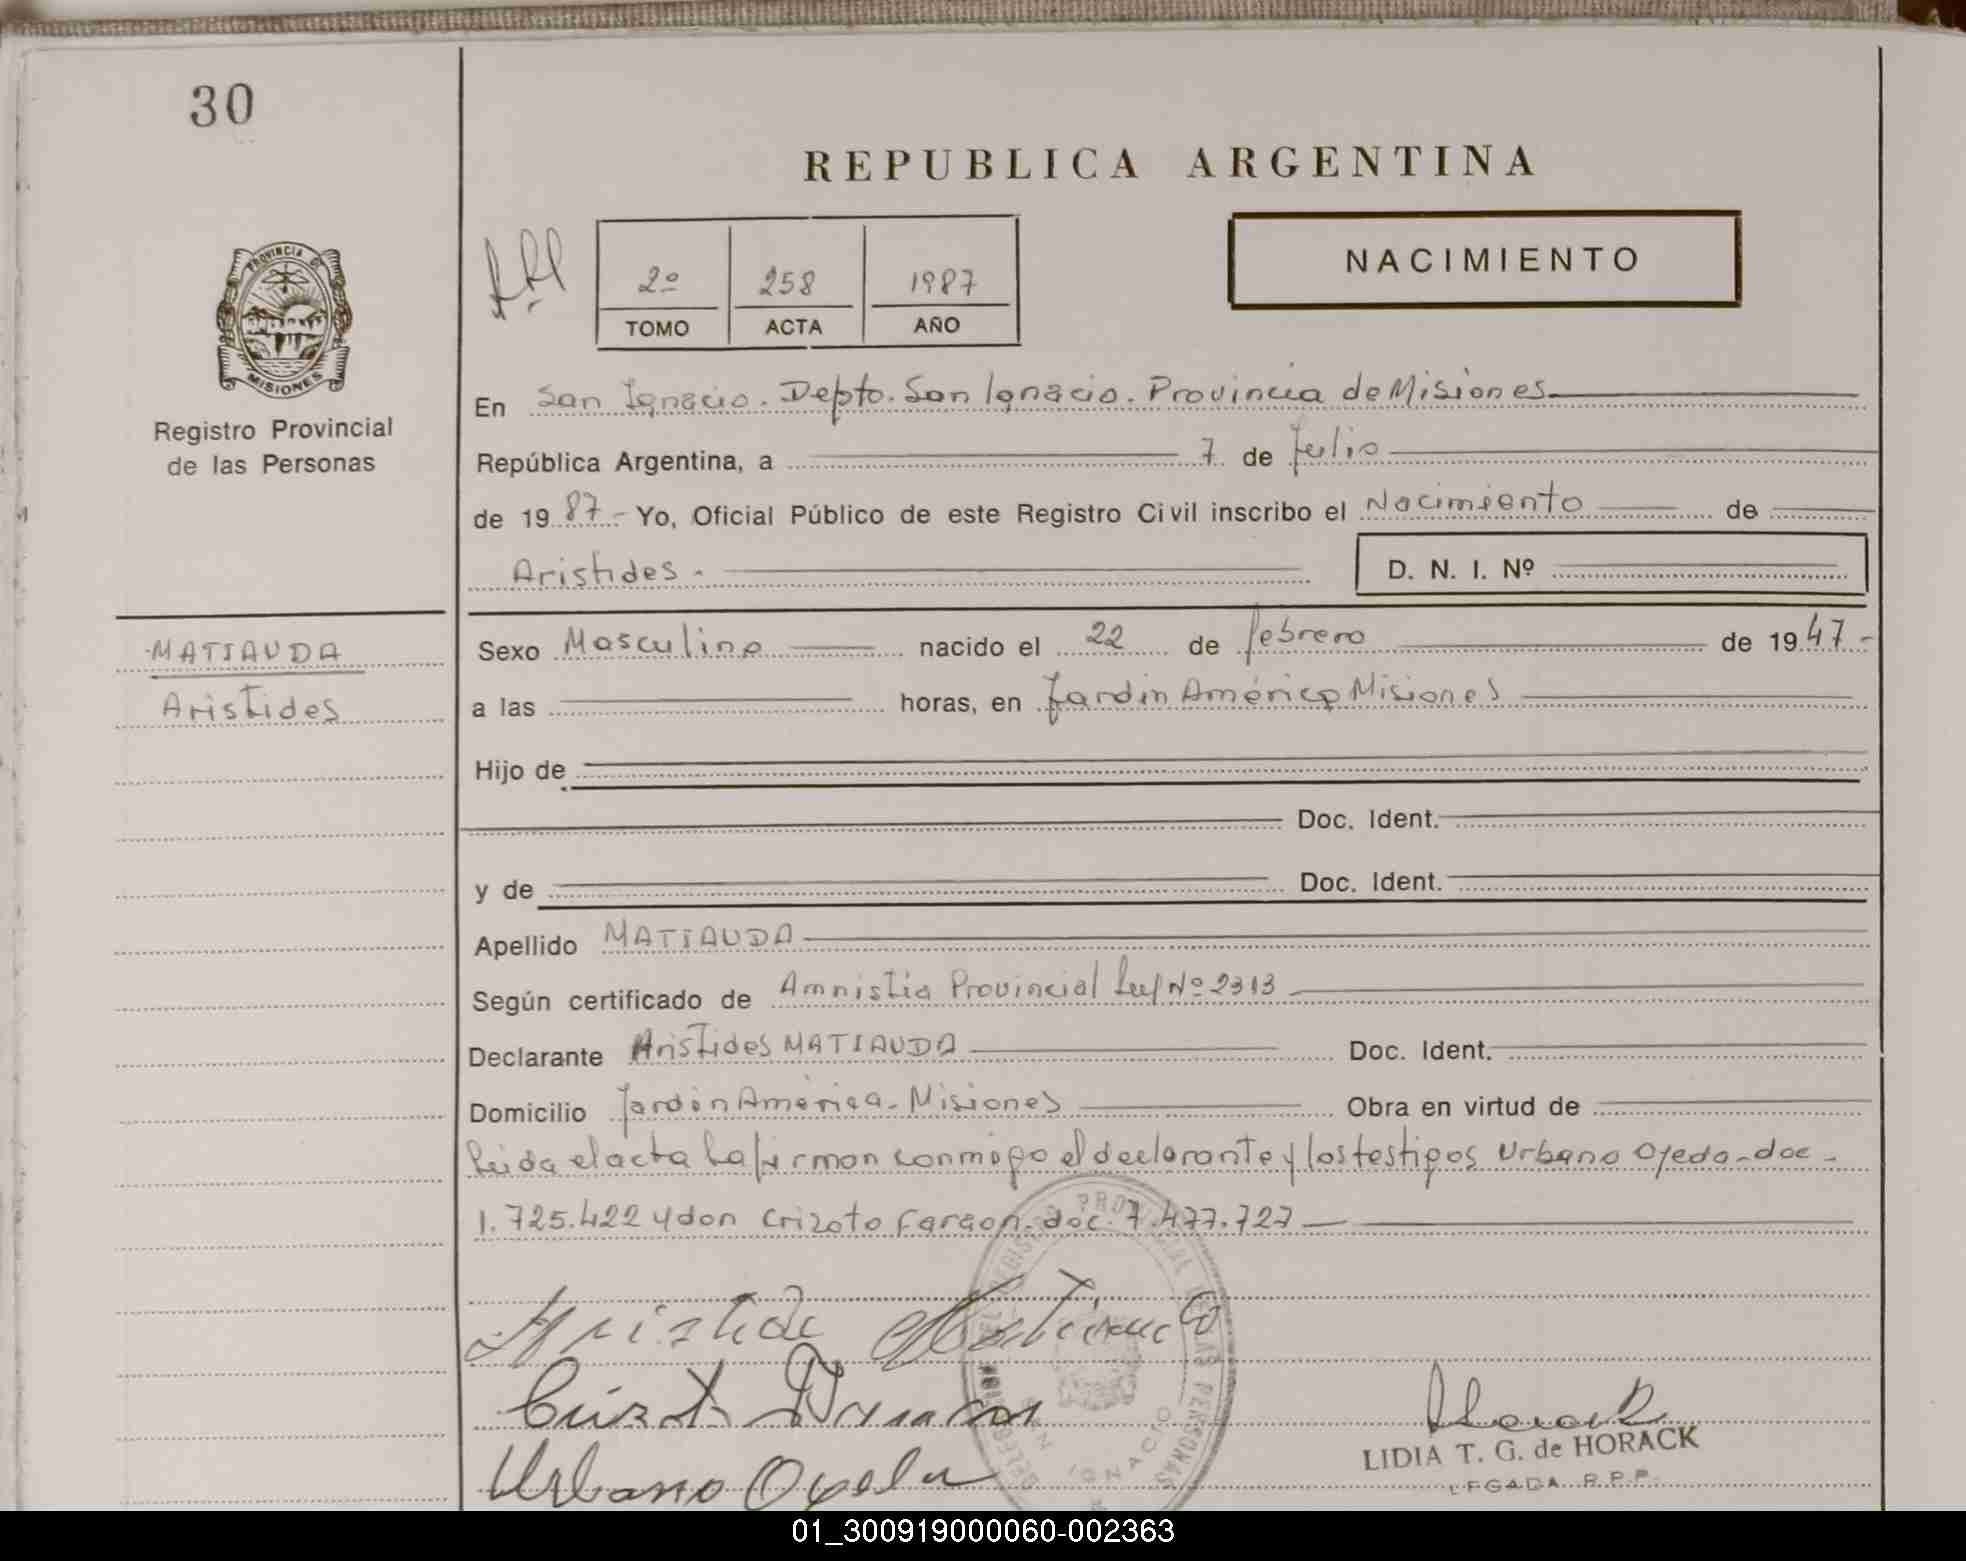 30
REPUBLICA ARGENTINA
NACIMIENTO
2º 258 1987
TOMO ACTA AÑO
PROVINCIA DE
MISIONES
Registro Provincial
de las Personas
En San Ignacio. Depto. San Ignacio. Provincia de Misiones
República Argentina, a 7 de Julio
de 1987.- Yo, Oficial Público de este Registro Civil inscribo el Nacimiento de
Aristides.- D. N. I. Nº
MATIAUDA
Aristides
Sexo Masculino nacido el 22 de febrero de 1947.-
a las horas, en Jardin América Misiones
Hijo de
Doc. Ident.
y de Doc. Ident.
Apellido MATIAUDA
Según certificado de Amnistia Provincial Ley Nº 2313
Declarante Aristides MATIAUDA Doc. Ident.
Domicilio Jardin América - Misiones Obra en virtud de
Leida el acta la firman conmigo el declarante y los testigos Urbano Ojeda - doc.
1.725.422 y don Crizoto Faraon. doc. 7.477.727
DELEG REGISTRO PROVINCIAL DE LAS PERSONAS
SAN IGNACIO
Urbano Ojeda
LIDIA T. G. de HORACK
LEGADA R.P.P.
01_300919000060-002363